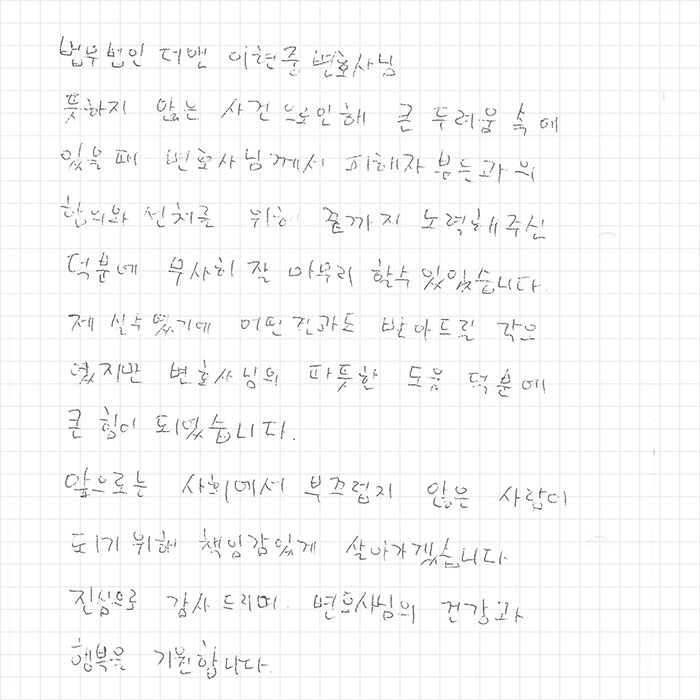 법무법인 더앤 이현중변호사님
뜻하지 않는 사건으로인해 큰 두려움 속에
있을때 변호사님께서 피해자 분들과의
합의와 선처를 위해 끝까지 노력해주신
덕분에 무사히 잘 마무리 할수 있었습니다.
제 실수였기에 어떤결과도 받아드릴 각오
였지만 변호사님의 따뜻한 도움 덕분에
큰 힘이 되었습니다.
앞으로는 사회에서 부끄럽지 않은 사람이
되기위해 책임감있게 살아가겠습니다
진심으로 감사드리며. 변호사님의 건강과
행복을 기원합니다.